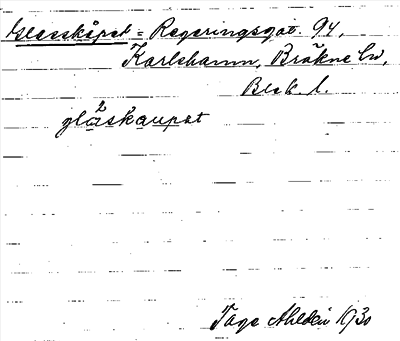 Glasskåpet = Regeringsgat. 94,
Karlshamn, Bräkne hd,
Blek. l.
2
glåskaupat
Tage Ahldén 1930